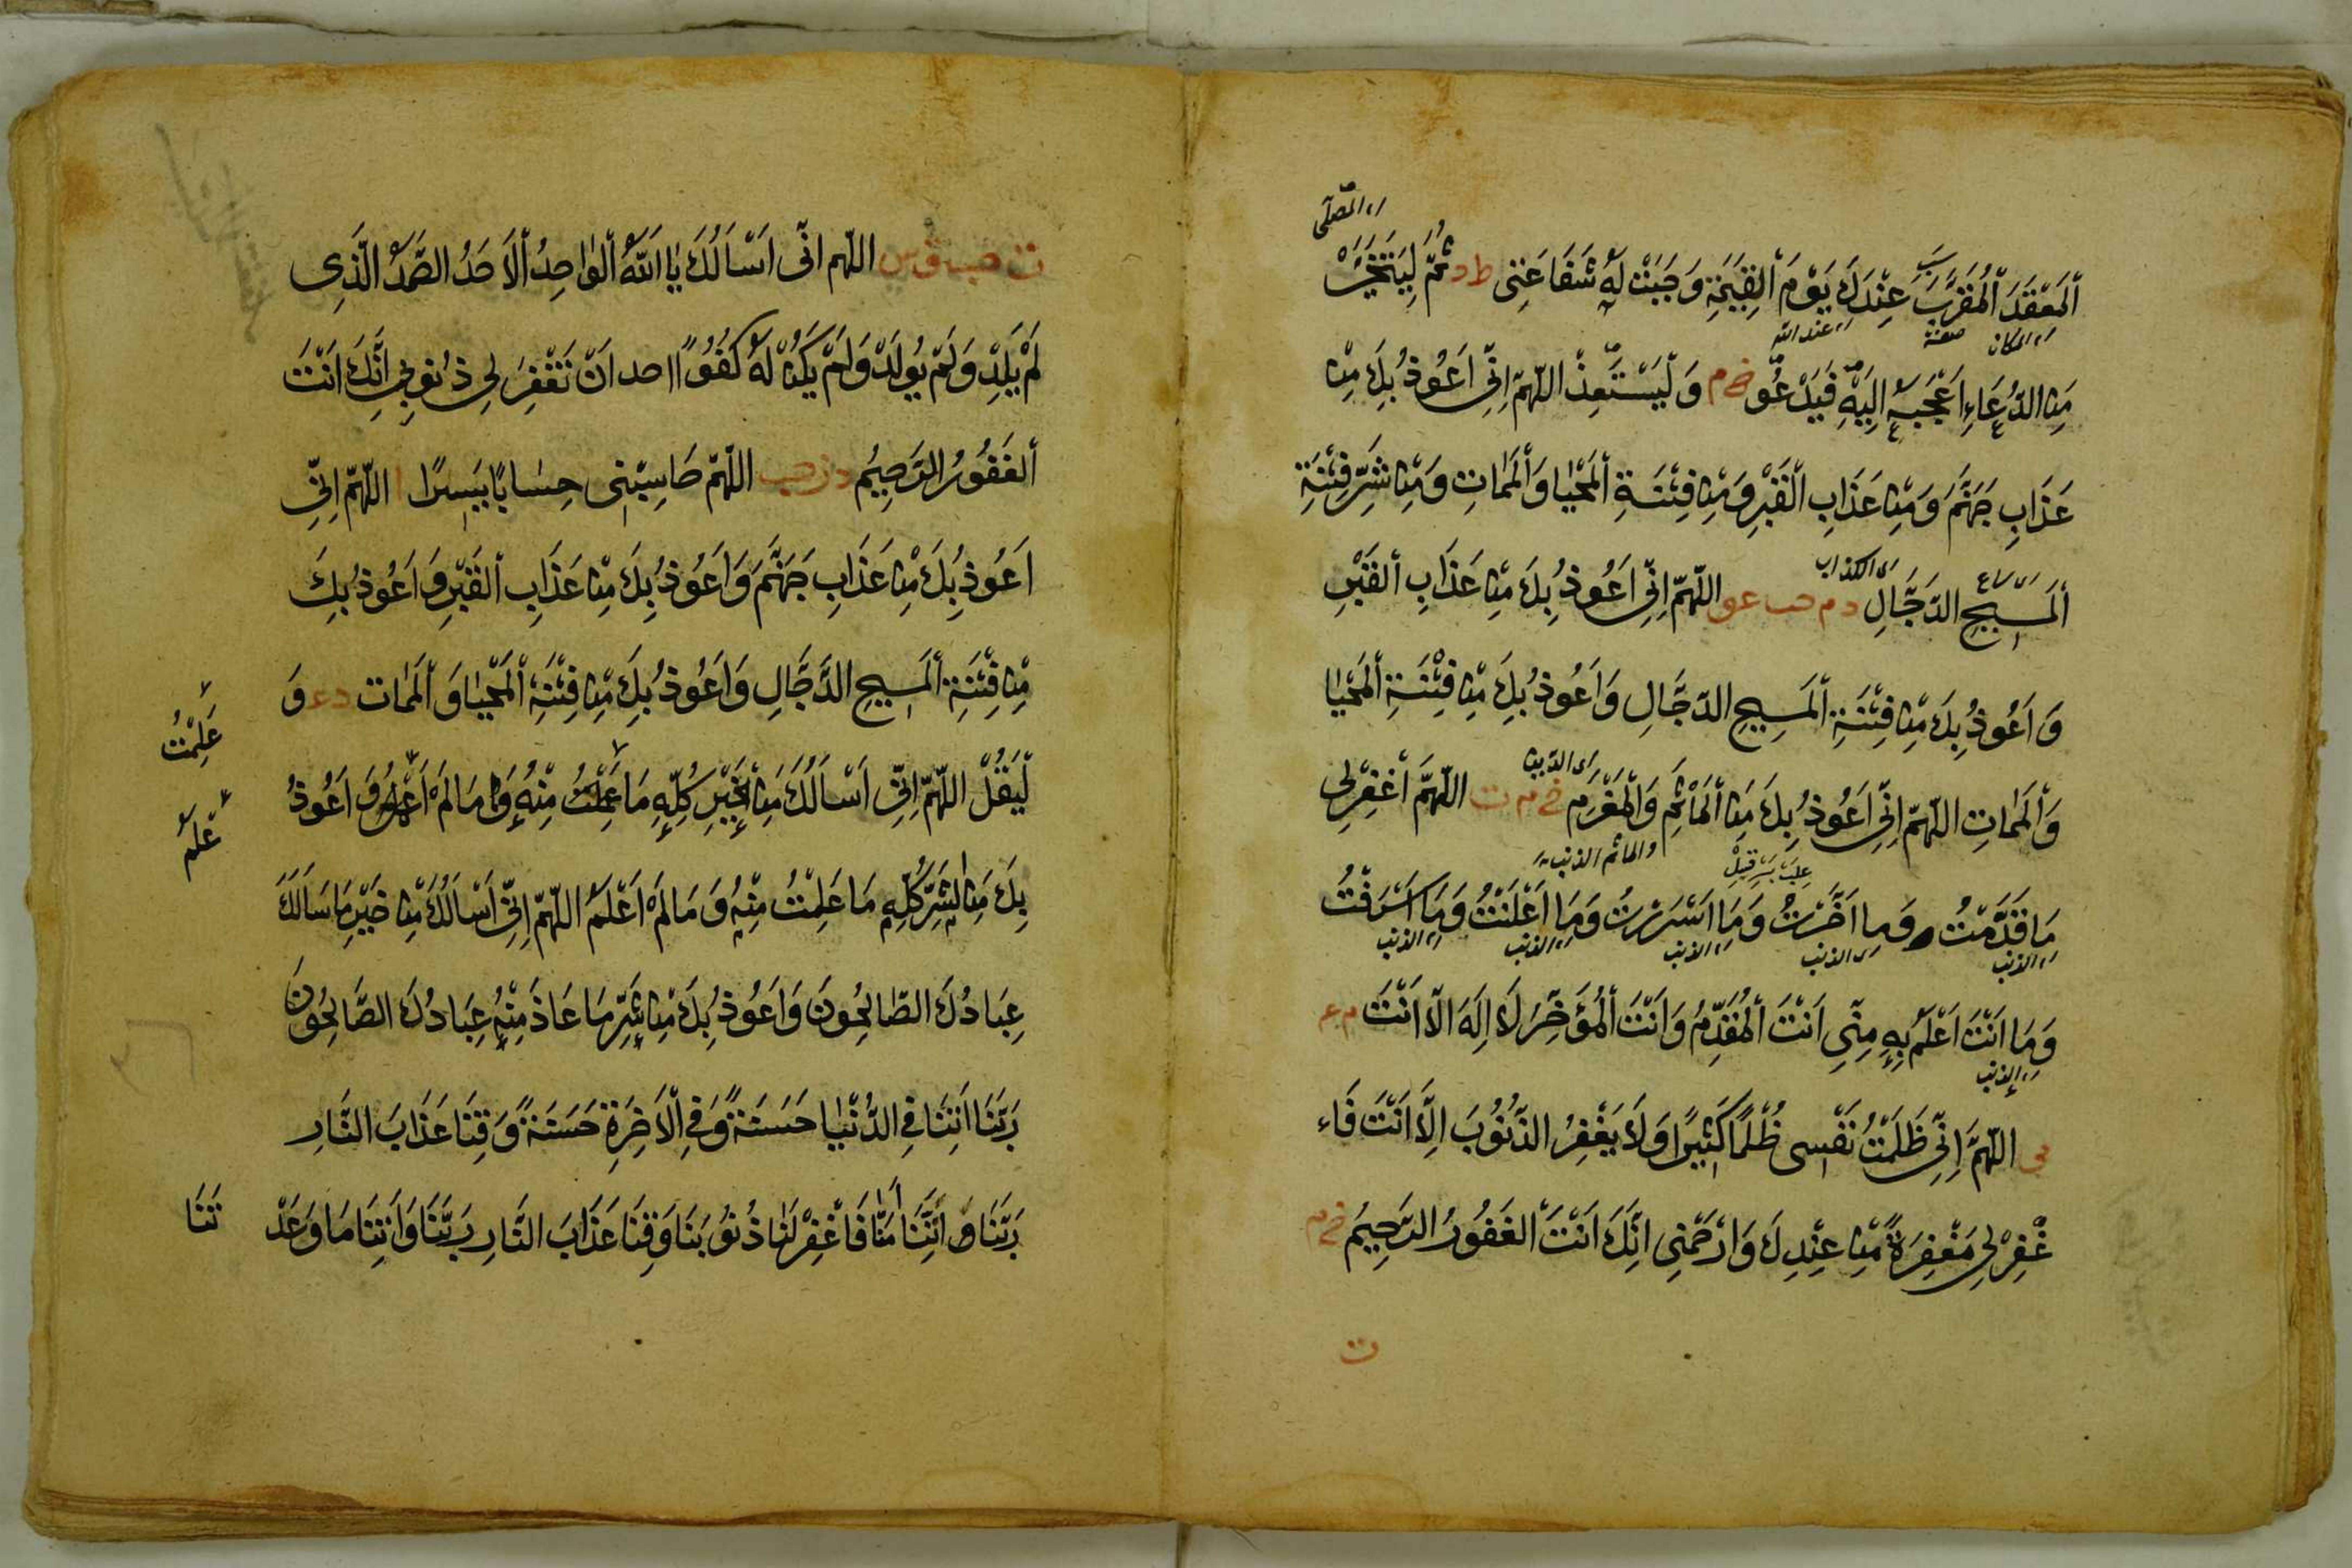 ای المصلّی
اَلْمَقْعَدَ الْمُقَرَّبَ عِنْدَكَ يَوْمَ الْقِيٰمَةِ وَجَبَتْ لَهٗ شَفَاعَتِی ط د ثُمَّ لِيَتَخَيَّرْ
ای المکان صفة ای عند الله
مِنَ الدُّعَاءِ اَعْجَبَهٗ اِلَيْهِ فَيَدْعُو خ م وَلْيَسْتَعِذْ اللّٰهُمَّ اِنِّی اَعُوذُ بِكَ مِنْ
عَذَابِ جَهَنَّمَ وَمِنْ عَذَابِ الْقَبْرِ وَمِنْ فِتْنَةِ الْمَحْيَا وَالْمَمَاتِ وَمِنْ شَرِّ فِتْنَةِ
ای الکذاب
اَلْمَسِيحِ الدَّجَّالِ د م حب عو اللّٰهُمَّ اِنِّی اَعُوذُ بِكَ مِنْ عَذَابِ الْقَبْرِ
وَاَعُوذُ بِكَ مِنْ فِتْنَةِ الْمَسِيحِ الدَّجَّالِ وَاَعُوذُ بِكَ مِنْ فِتْنَةِ الْمَحْيَا
ای الدین
وَالْمَمَاتِ اللّٰهُمَّ اِنِّی اَعُوذُ بِكَ مِنَ الْمَاْثَمِ وَالْمَغْرَمِ خ م ت اللّٰهُمَّ اغْفِرْ لِی
والماثم الذنب
مَا قَدَّمْتُ وَمَا اَخَّرْتُ وَمَا اَسْرَرْتُ وَمَا اَعْلَنْتُ وَمَا اَسْرَفْتُ
ای الذنب ای الذنب ای الذنب ای الذنب ای الذنب
وَمَا اَنْتَ اَعْلَمُ بِهٖ مِنِّی اَنْتَ الْمُقَدِّمُ وَاَنْتَ الْمُؤَخِّرُ لَا اِلٰهَ اِلَّا اَنْتَ م ع
ای الذنب
اللّٰهُمَّ اِنِّی ظَلَمْتُ نَفْسِی ظُلْمًا كَثِيْرًا وَلَا يَغْفِرُ الذُّنُوْبَ اِلَّا اَنْتَ فَاء
غْفِرْ لِی مَغْفِرَةً مِنْ عِنْدِكَ وَارْحَمْنِی اِنَّكَ اَنْتَ الْغَفُوْرُ الرَّحِيمُ خ م
ت
ت حب ق س اللّٰهم انّی اَسْاَلُكَ يَا اَللّٰهُ الْوَاحِدُ الْاَحَدُ الصَّمَدُ الَّذِی
لَمْ يَلِدْ وَلَمْ يُولَدْ وَلَمْ يَكُنْ لَهٗ كُفُوًا احد اَنْ تَغْفِرَ لِی ذُنُوبِی اِنَّكَ اَنْتَ
اَلْغَفُوْرُ الرَّحِيْمُ د ز حب اللّٰهُمَّ حَاسِبْنِی حِسَابًا يَسِيرًا ا اللّٰهُمَّ اِنِّی
اَعُوذُ بِكَ مِنْ عَذَابِ جَهَنَّمَ وَاَعُوذُ بِكَ مِنْ عَذَابِ الْقَبْرِ وَاَعُوذُ بِكَ
مِنْ فِتْنَةِ الْمَسِيحِ الدَّجَّالِ وَاَعُوذُ بِكَ مِنْ فِتْنَةِ الْمَحْيَا وَالْمَمَات د عو وَ
عَلِمْتُ
لْيَقُلْ اللّٰهُمَّ اِنِّی اَسْاَلُكَ مِنَ الْخَيْرِ كُلِّهٖ مَا عَلِمْتُ مِنْهُ وَمَا لَمْ اَعْلَمُ وَاَعُوذُ
عْلم
بِكَ مِنَ الشَّرِّ كُلِّهٖ مَا عَلِمْتُ مِنْهُ وَمَا لَمْ اَعْلَمُ اللّٰهُمَّ اِنِّی اَسْاَلُكَ مِنْ خَيْرِ مَا سَاَلَكَ
عِبَادُكَ الصَّالِحُونَ وَاَعُوذُ بِكَ مِنْ شَرِّ مَا عَاذَ مِنْهُ عِبَادُكَ الصَّالِحُوْنَ
رَبَّنَا اٰتِنَا فِی الدُّنْيَا حَسَنَةً وَفِی الْاٰخِرَةِ حَسَنَةً وَقِنَا عَذَابَ النَّارِ
رَبَّنَا اِنَّنَا اٰمَنَّا فَاغْفِرْ لَنَا ذُنُوْبَنَا وَقِنَا عَذَابَ النَّارِ رَبَّنَا وَاٰتِنَا مَا وَعَدْ
تَنَا